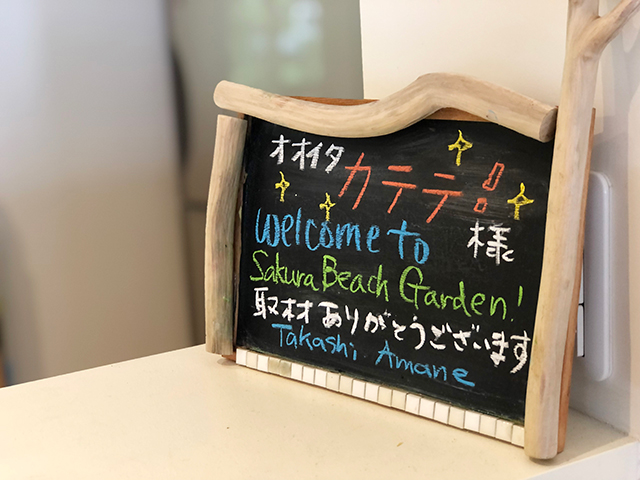 オオイタ
カテテ!
様
Welcome to
Sakura Beach Garden!
取材ありがとうございます
Takashi Amane